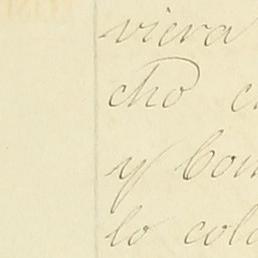 viera
cho c
y com
lo colo